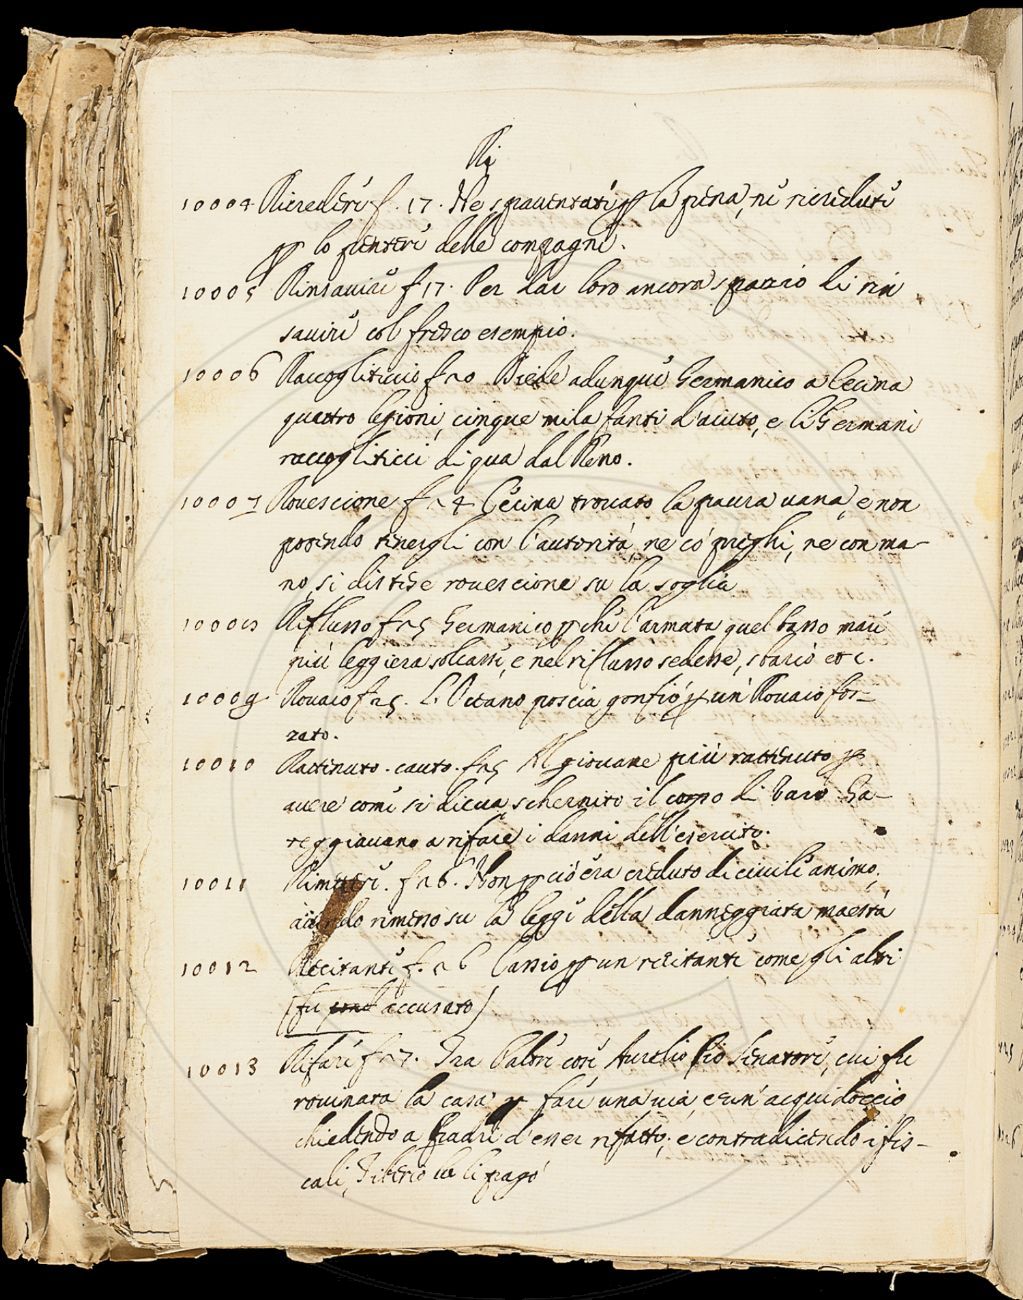 Ri
10004 Ricredersi f. 17. Ne spaventati p la pena, ne ricreduti
p lo pentersi delle compagni.
10005 Rinsavire f 17. Per dar loro ancora spazio di rin
savire col fresco esempio.
10006 Raccogliticcio f 20. Diede adunque Germanico a Cecina
quattro legioni, cinque mila fanti d'aiuto, e li Germani
raccogliticci di qua dal Reno.
10007 Rovescione f 24 Cecina trovato la paura vana, e non
potendo tenergli con l'autorità, ne co preghi, ne con ma-
no si distese rovescione su la soglia
10008 Riflusso f 25 Germanico p che l'armata quel basso mare
più leggiera solcasse, e nel riflusso sedesse, scaricò etc.
10009 Rovaio f 25. L'Oceano poscia gonfiò p un Rovaio for-
zato.
10010 Rattenuto. cauto. f 25 Al giovane più rattenuto p
avere come si diceva schernito il corpo di Varo Ga-
reggiavano a rifare i danni dell'esercito.
10011 Rimettersi. f 26. Non p ciò era creduto di civile animo,
avendo rimesso su la legge della danneggiata maestà
10012 Recitante f. 26 Cassio p un recitante come gli altri
(fu accusato)
10013 Rifare f 27. Tra l'altre cose Aurelio Pio Senatore, cui fu
rovinata la casa p fare una via, e un acquidoccio
chiedendo a Padri d'esser rifatto; e contradicendo i fis-
cali, Tiberio la li pagò